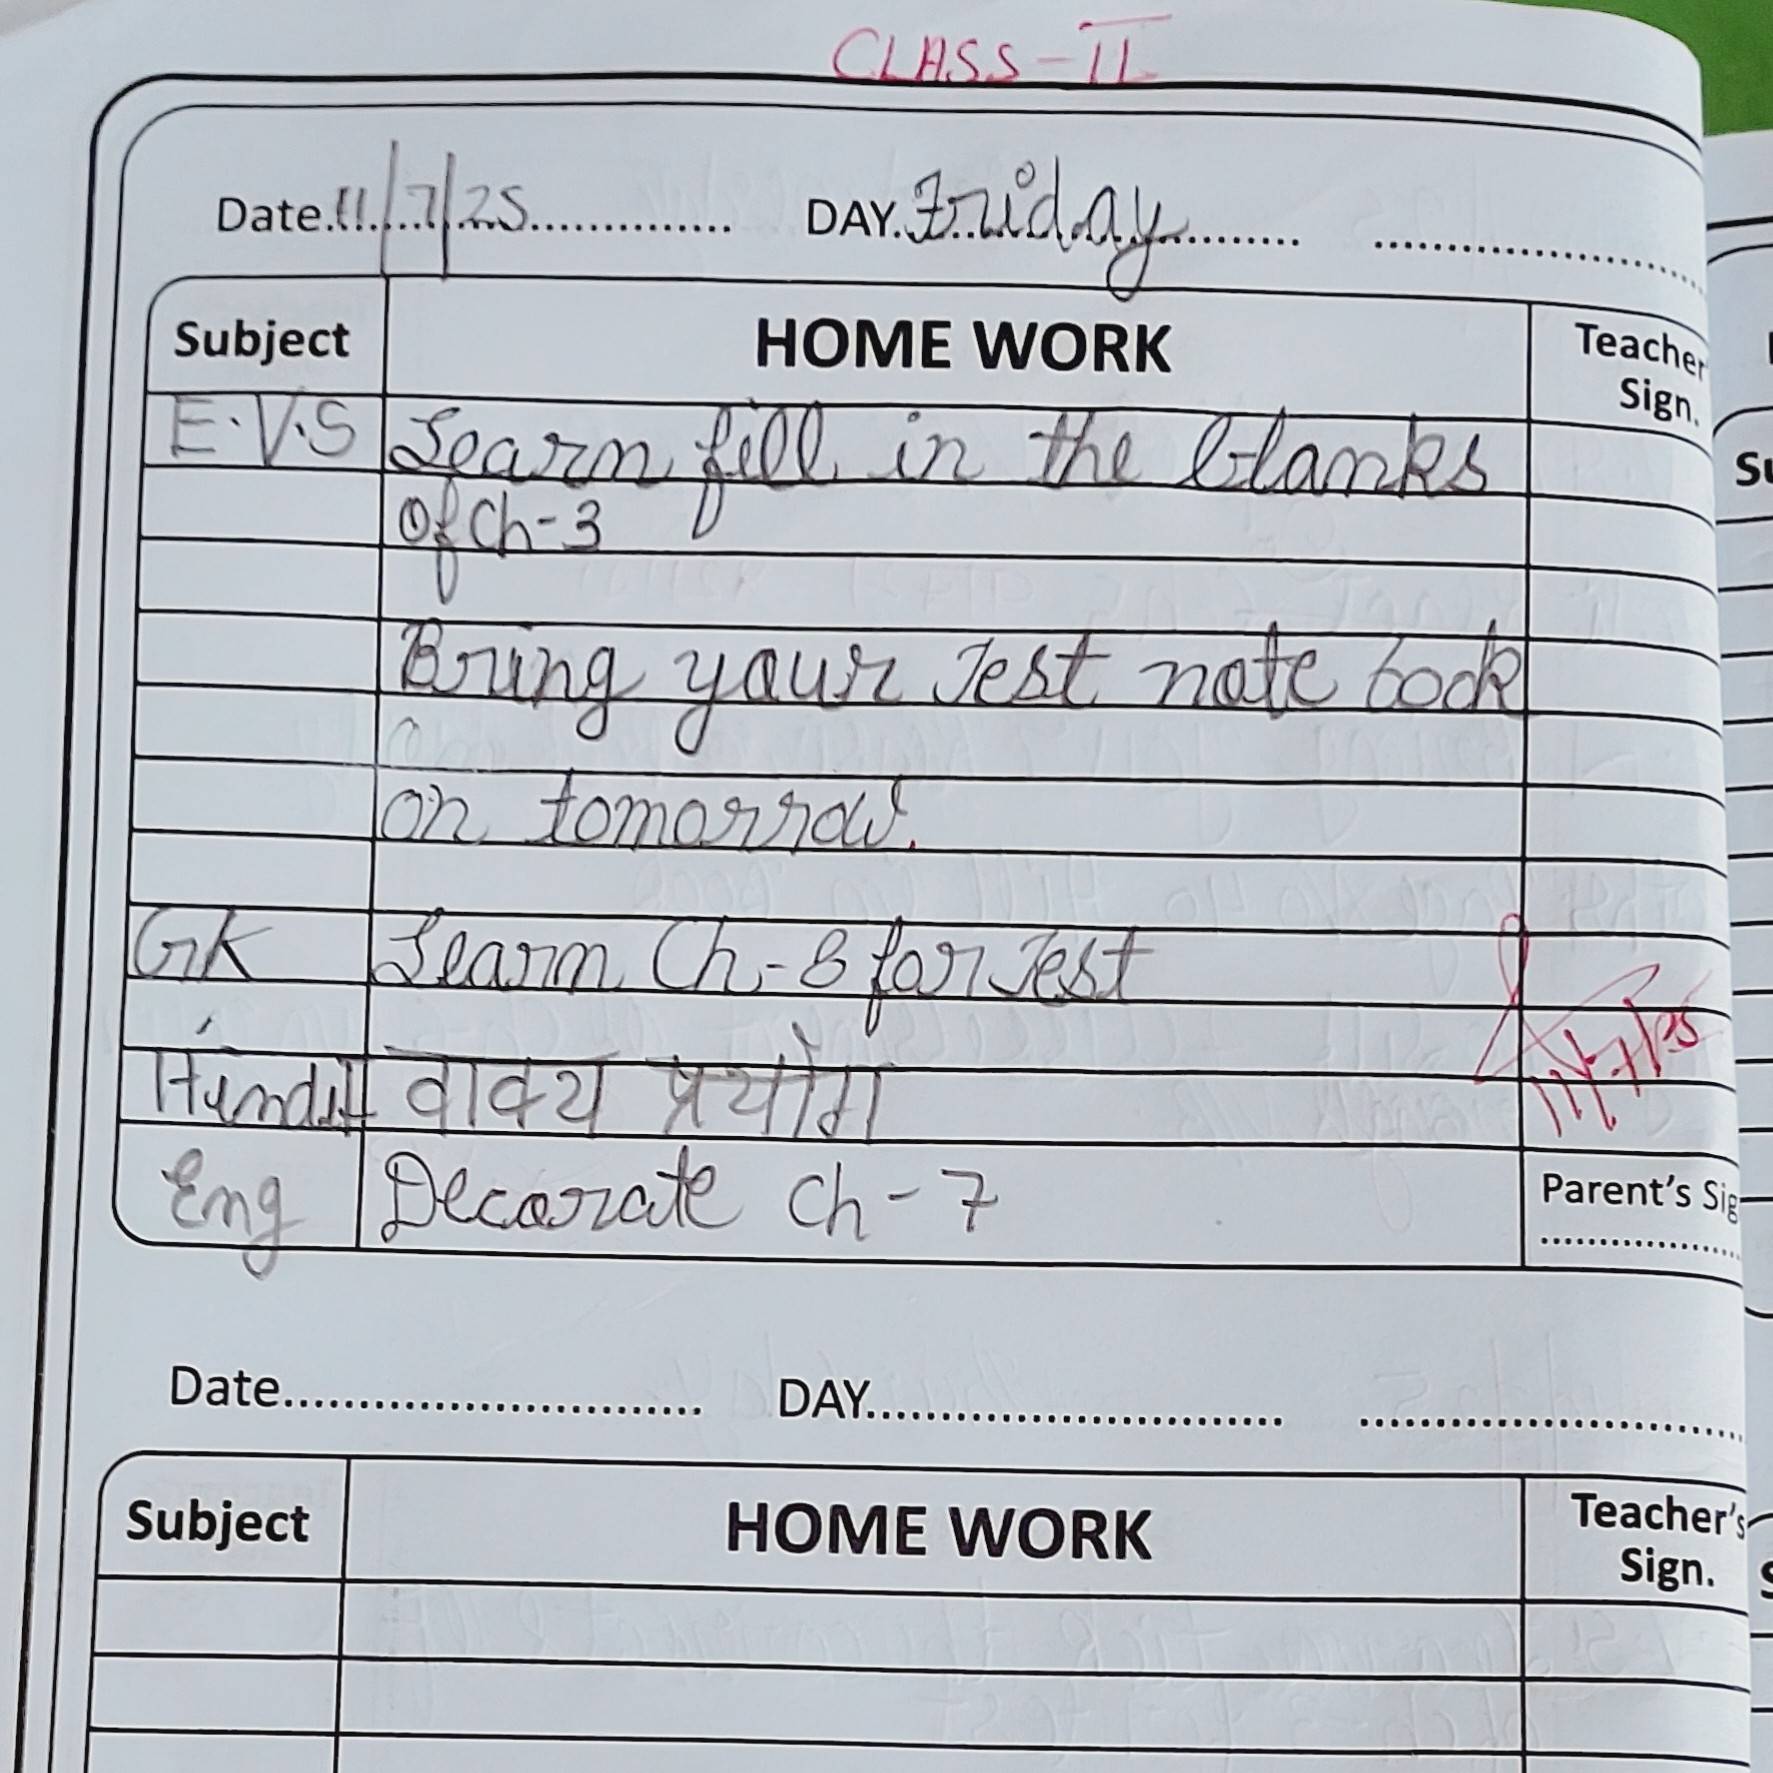 CLASS-II
Date.11/7/25 DAY.Friday
Subject HOME WORK Teacher Sign.
E.V.S Learn fill in the blanks
Of Ch-3
Bring your Test note book
on tomorrow.
GK Learn Ch-8 for Test
Hindi वाक्य प्रयोग
11/7/25
Eng Decorate Ch-7
Parent's Sig
Date DAY
Subject HOME WORK Teacher's Sign.